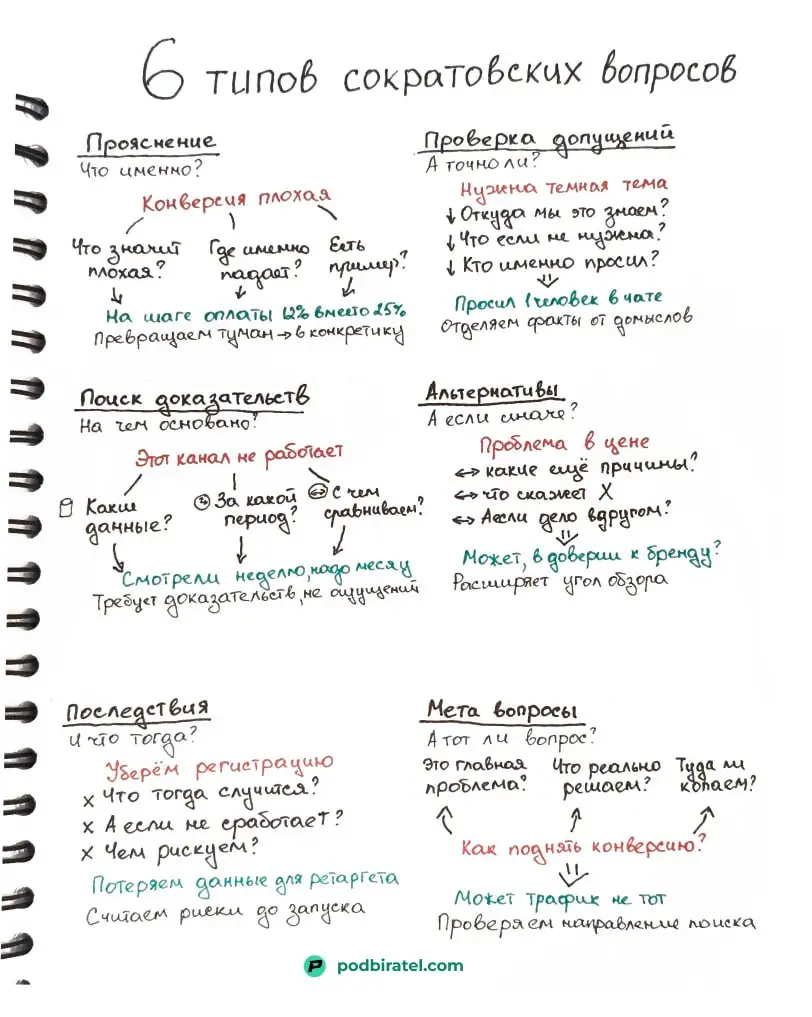 6 типов сократовских вопросов
Прояснение
Что именно?
Конверсия плохая
Что значит плохая?
Где именно падает?
Есть пример?
На шаге оплаты 12% вместо 25%
Превращаем туман → в конкретику
Проверка допущений
А точно ли?
Нужна темная тема
↓ Откуда мы это знаем?
↓ Что если не нужна?
↓ Кто именно просил?
Просил 1 человек в чате
Отделяем факты от домыслов
Поиск доказательств
На чем основано?
Этот канал не работает
Какие данные?
За какой период?
С чем сравниваем?
Смотрели неделю, надо месяц
Требует доказательств, не ощущений
Альтернативы
А если иначе?
Проблема в цене
↔ какие ещё причины?
↔ что скажет X
↔ А если дело в другом?
Может, в доверии к бренду?
Расширяет угол обзора
Последствия
И что тогда?
Уберём регистрацию
x Что тогда случится?
x А если не сработает?
x Чем рискуем?
Потеряем данные для ретаргета
Считаем риски до запуска
Мета вопросы
А тот ли вопрос?
Это главная проблема?
Что реально решаем?
Туда ли копаем?
Как поднять конверсию?
Может трафик не тот
Проверяем направление поиска
podbiratel.com